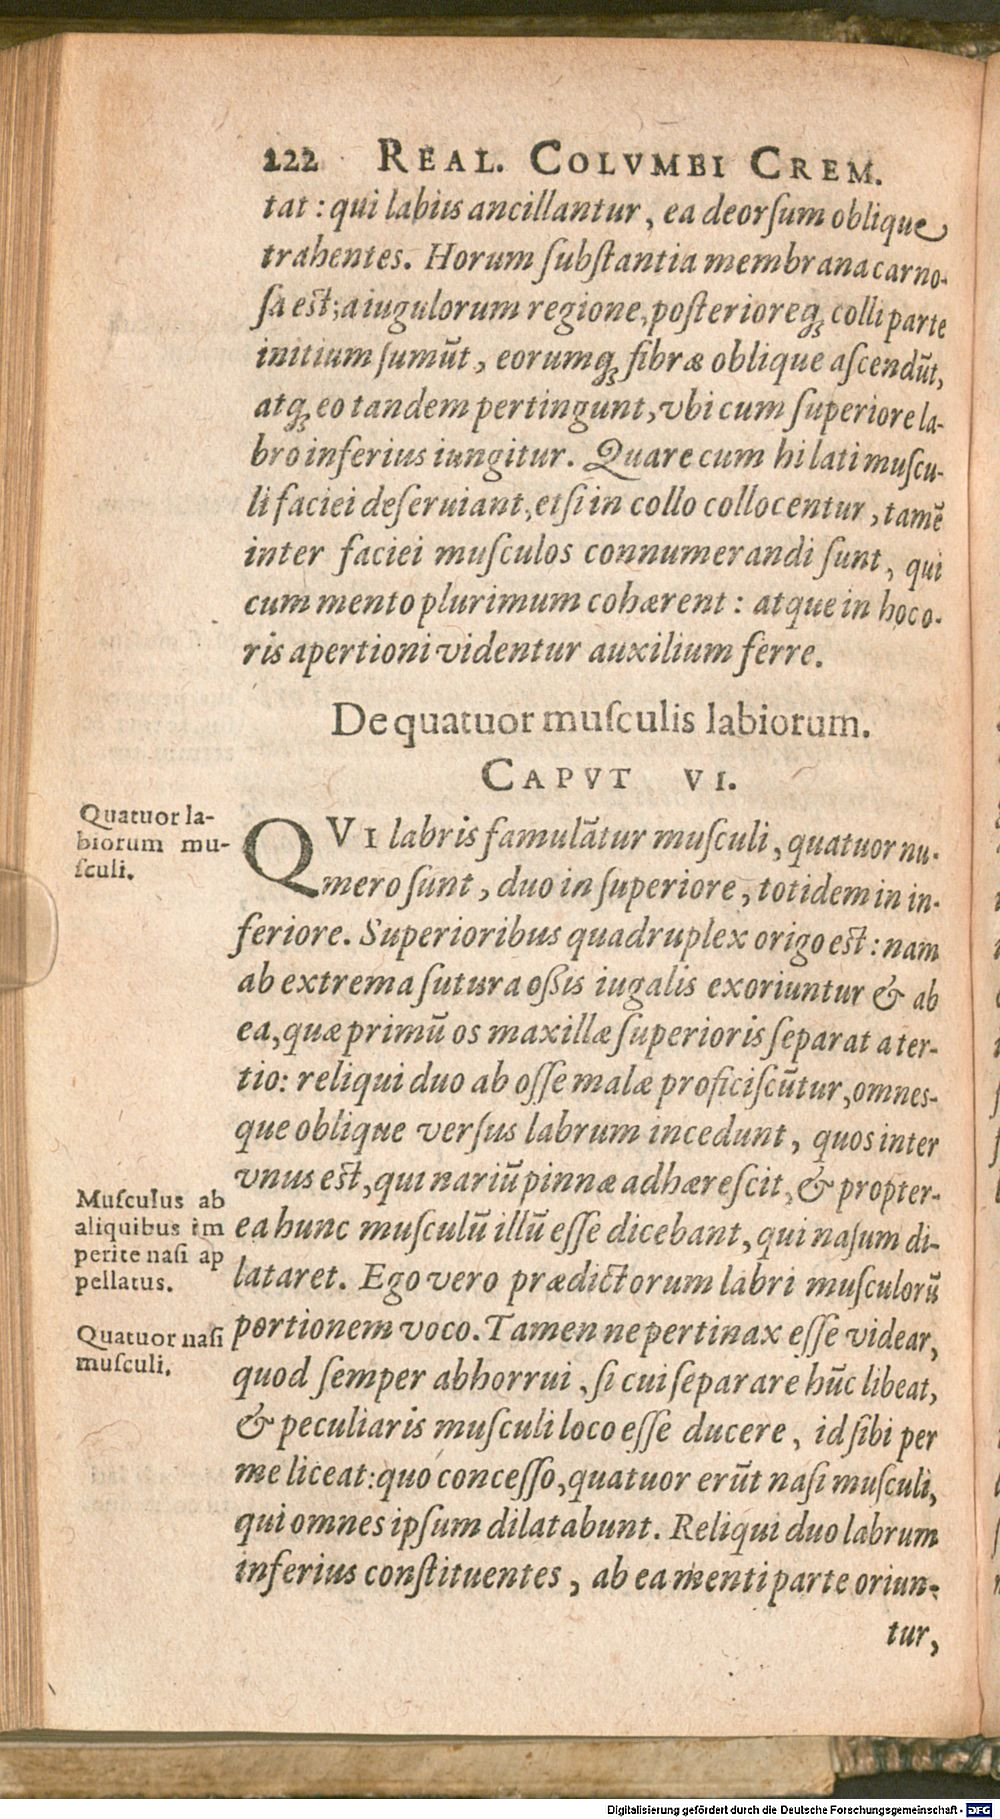 222 REAL. COLVMBI CREM.
tat: qui labiis ancillantur, ea deorsum oblique
trahentes. Horum substantia membrana carno-
sa est; a iugulorum regione, posterioreq́; colli parte
initium sumũt, eorumq́; fibræ oblique ascendũt,
atq́; eo tandem pertingunt, vbi cum superiore la-
bro inferius iungitur. Quare cum hi lati muscu-
li faciei deseruiant, etsi in collo collocentur, tamẽ
inter faciei musculos connumerandi sunt, qui
cum mento plurimum cohærent: atque in hoc o-
ris apertioni videntur auxilium ferre.
De quatuor musculis labiorum.
CAPVT VI.
Quatuor la-
biorum mu-
sculi.
QVI labris famulãtur musculi, quatuor nu-
mero sunt, duo in superiore, totidem in in-
feriore. Superioribus quadruplex origo est: nam
ab extrema sutura ossis iugalis exoriuntur & ab
ea, quæ primũ os maxillæ superioris separat a ter-
tio: reliqui duo ab osse malæ proficiscũtur, omnes-
que oblique versus labrum incedunt, quos inter
vnus est, qui nariũ pinnæ adhærescit, & propter-
Musculus ab
aliquibus im
perite nasi ap
pellatus.
ea hunc musculũ illũ esse dicebant, qui nasum di-
lataret. Ego vero prædictorum labri musculorũ
Quatuor nasi
musculi.
portionem voco. Tamen ne pertinax esse videar,
quod semper abhorrui, si cui separare hũc libeat,
& peculiaris musculi loco esse ducere, id sibi per
me liceat: quo concesso, quatuor erũt nasi musculi,
qui omnes ipsum dilatabunt. Reliqui duo labrum
inferius constituentes, ab ea menti parte oriun-
tur,
Digitalisierung gefördert durch die Deutsche Forschungsgemeinschaft - DFG